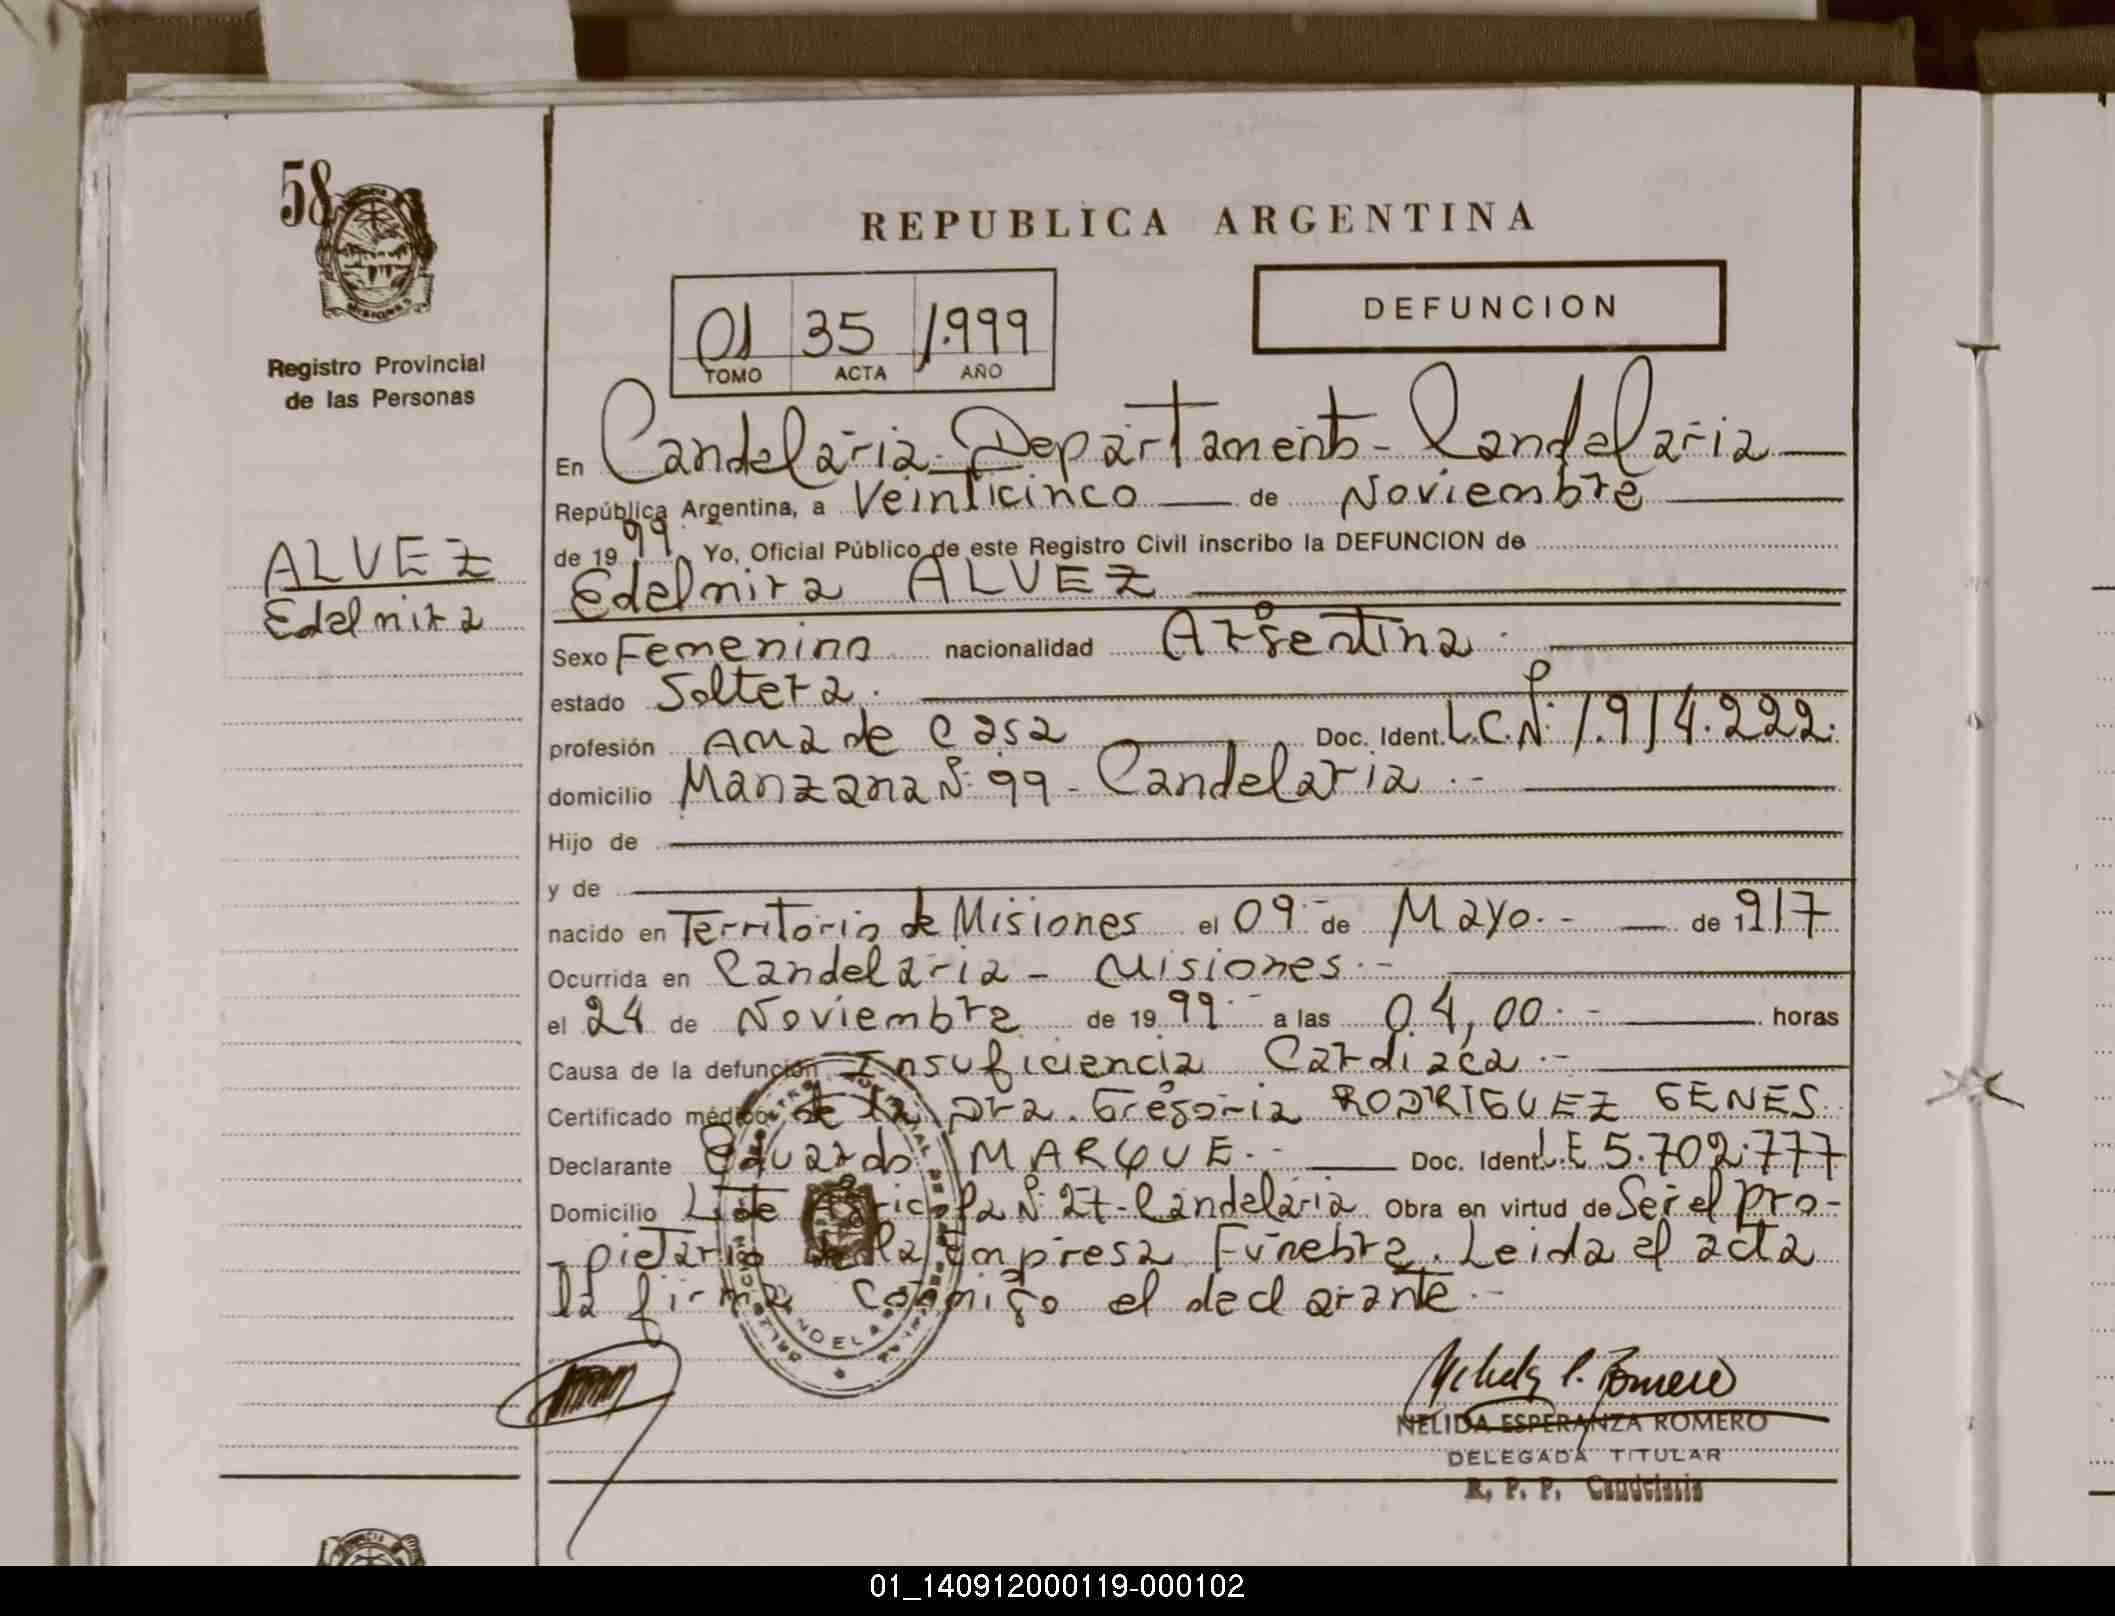 58
MISIONES
Registro Provincial
de las Personas
ALVEZ
Edelmira
REPUBLICA ARGENTINA
01 35 1.999
TOMO ACTA AÑO
DEFUNCION
En Candelaria - Departamento - Candelaria
República Argentina, a Veinticinco de Noviembre
de 1999. Yo, Oficial Público de este Registro Civil inscribo la DEFUNCION de
Edelmira ALVEZ
Sexo Femenino nacionalidad Argentina.
estado Soltera.
profesión Ama de Casa Doc. Ident. L.C.Nº 1.914.222.
domicilio Manzana Nº 99 - Candelaria.-
Hijo de
y de
nacido en Territorio de Misiones el 09 de Mayo.- de 1917
Ocurrida en Candelaria - Misiones.-
el 24 de Noviembre de 1999.- a las 04,00.- horas
Causa de la defunción Insuficiencia Cardiaca.-
Certificado médico de la Dra. Gregoria RODRIGUEZ GENES.
Declarante Eduardo MARQUE.- Doc. Ident. L.E 5.702.777
Domicilio Lote Agricola Nº 27 - Candelaria Obra en virtud de Ser el pro-
pietario de la Empresa Funebre. Leida el acta
la firma conmigo el declarante.-
Nelida E. Romero
NELIDA ESPERANZA ROMERO
DELEGADA TITULAR
R. P. P. Candelaria
01_140912000119-000102